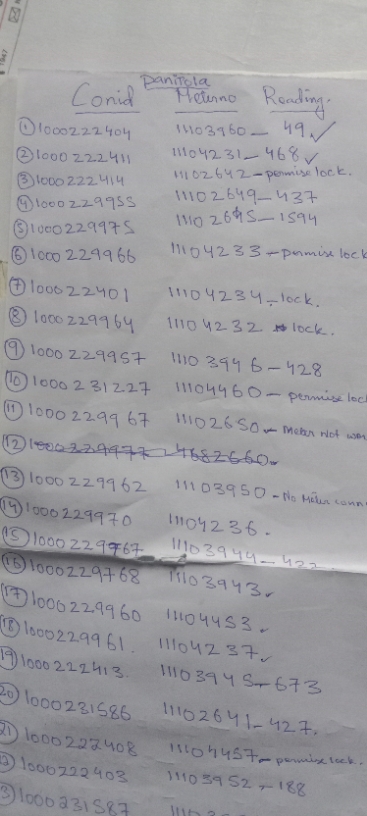 Panitola
Conid Meterno Reading.
① 1000222404 11103960 - 49 ✓
② 1000222411 11104231 - 468 ✓
③ 1000222414 11102642 - permise lock.
④ 1000229955 11102649 - 437
⑤ 1000229975 11102645 - 1594
⑥ 1000229966 11104233 - permise lock
⑦ 100022401 11104234 - lock.
⑧ 1000229964 11104232 lock.
⑨ 1000229957 11103946 - 428
⑩ 1000231227 11104460 - permise loc
⑪ 1000229967 11102650 - Meter Not
⑫ 1000229977 - 4682660
⑬ 1000229962 11103950 - No Meter conn
⑭ 1000229970 11104236.
⑮ 1000229767 11103944 - 422
⑯ 1000229768 11103943.
⑰ 1000229960 11104453.
⑱ 1000229961. 11104237.
⑲ 1000222413. 11103945 - 673
⑳ 1000231586 11102641 - 427.
㉑ 1000222408 11104457 - permise lock.
1000222403 11103952 - 188
1000231587